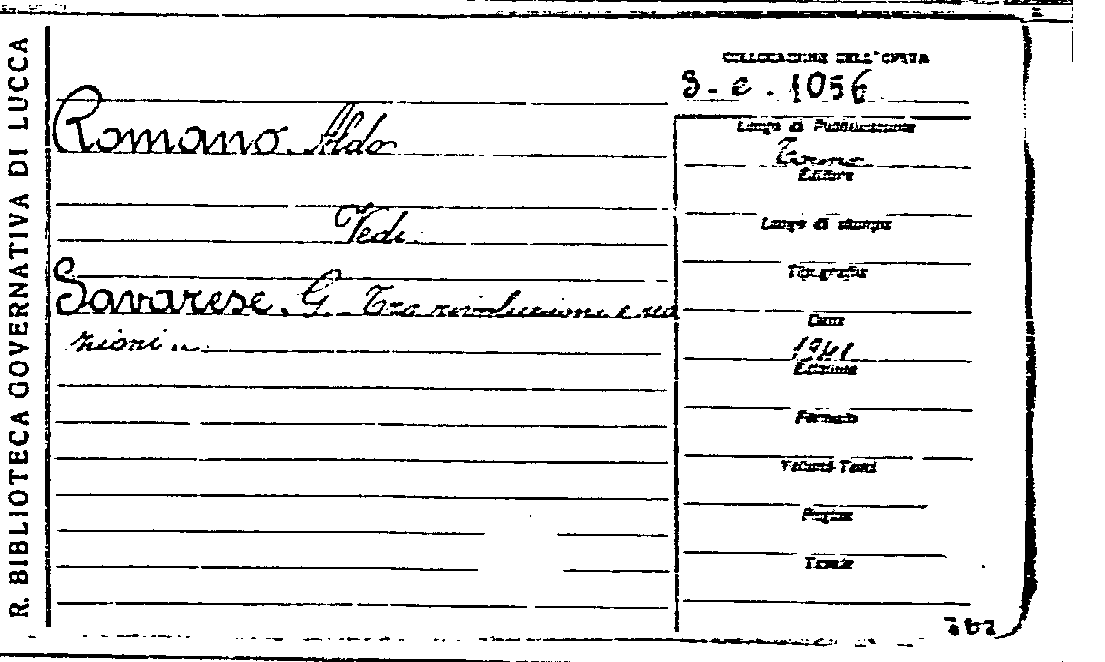 R. BIBLIOTECA GOVERNATIVA DI LUCCA
COLLOCAZIONE DELL'OPERA
3. e. 1056
Romano Aldo
Vedi
Savarese. G. Tra rivoluzioni e rea
zioni...
Luogo di Pubblicazione
Torino
Editore
Luogo di stampa
Tipografia
Data
1941
Edizione
Formato
Volumi-Tomi
Pagine
Tavole